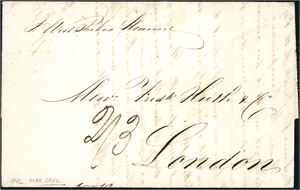 p West India Steamer
Messrs Fredk Huth & Co
2/3
London
1842 VERA CRUZ